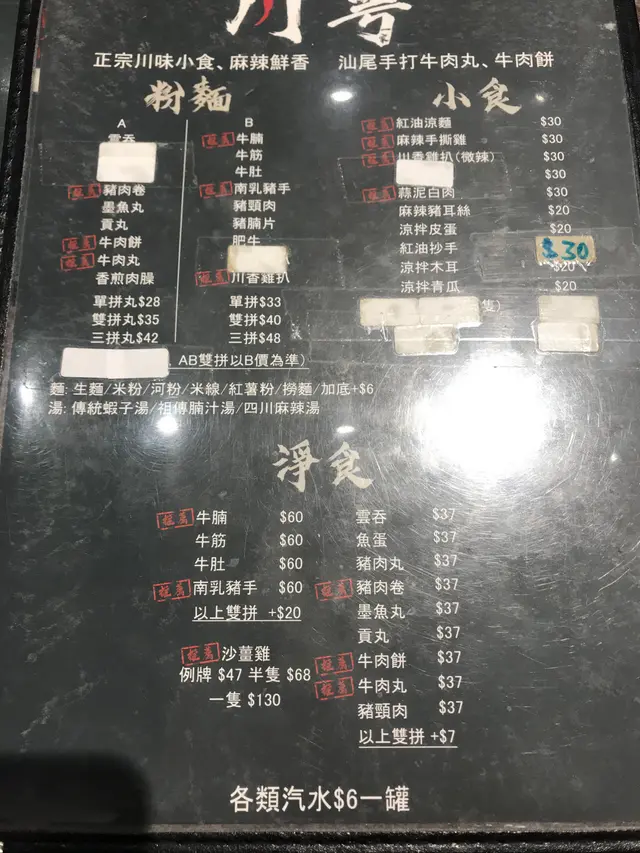 川
正宗川味小食、麻辣鮮香 汕尾手打牛肉丸、牛肉餅
粉麵
A
雲吞
推薦 豬肉卷
墨魚丸
貢丸
推薦 牛肉餅
推薦 牛肉丸
香煎肉腸
單拼丸$28
雙拼丸$35
三拼丸$42
B
推薦 牛腩
牛筋
牛肚
推薦 南乳豬手
豬頸肉
豬腩片
肥牛
推薦 川香雞扒
單拼$33
雙拼$40
三拼$48
AB雙拼以B價為準)
麵: 生麵/米粉/河粉/米線/紅薯粉/撈麵/加底+$6
湯: 傳統蝦子湯/祖傳腩汁湯/四川麻辣湯
小食
推薦 紅油涼麵 $30
推薦 麻辣手撕雞 $30
推薦 川香雞扒(微辣) $30
$30
推薦 蒜泥白肉 $30
麻辣豬耳絲 $20
涼拌皮蛋 $20
紅油抄手 $30
涼拌木耳 $20
涼拌青瓜 $20
隻)
淨食
推薦 牛腩 $60
牛筋 $60
牛肚 $60
推薦 南乳豬手 $60
以上雙拼 +$20
推薦 沙薑雞
例牌 $47 半隻 $68
一隻 $130
雲吞 $37
魚蛋 $37
豬肉丸 $37
推薦 豬肉卷 $37
墨魚丸 $37
貢丸 $37
推薦 牛肉餅 $37
推薦 牛肉丸 $37
豬頸肉 $37
以上雙拼 +$7
各類汽水$6一罐